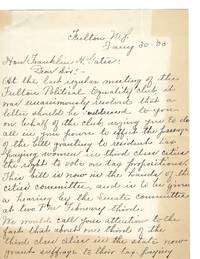 Fulton N.Y.
Jany 30 - 03
Hon Franklin H. Gates:
Dear Sir:-
At the last regular meeting of the
Fulton Political Equality club it
was unanimously resolved that a
letter should be addressed to you
on behalf of the club urging you to do
all in your power to effect the passage
of the bill granting to resident tax
paying women in third class cities
the right to vote on tax propositions.
This bill is now in the hands of the
cities committee, and is to be given
a hearing by the Senate committee
at two P.M. February third.
We would call your attention to the
fact that about one third of the
third class cities in the state now
grants suffrage to their tax paying